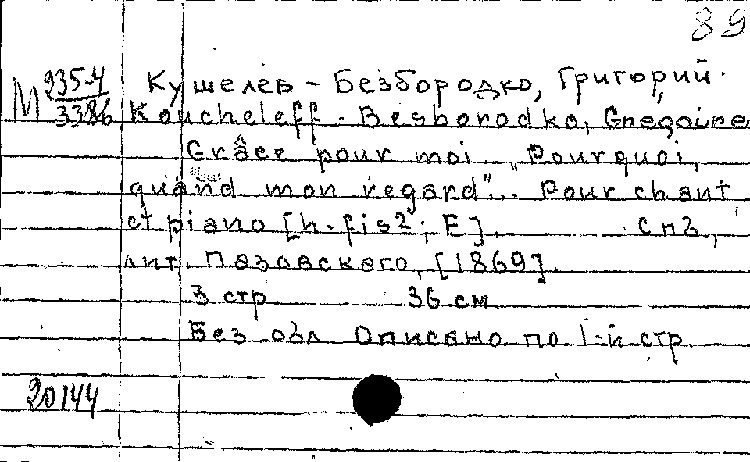 89
М 235-4/3386 Кушелев-Безбородко, Григорий.
Koucheleff-Besborodko, Gregoire
Grâce pour moi... "Pourquoi,
quand mon regard"... Pour chant
et piano [h-fis²; E]. Спб,
лит. Пазовского, [1869].
3 стр 36 см
Без обл Описано по 1-й стр
20144